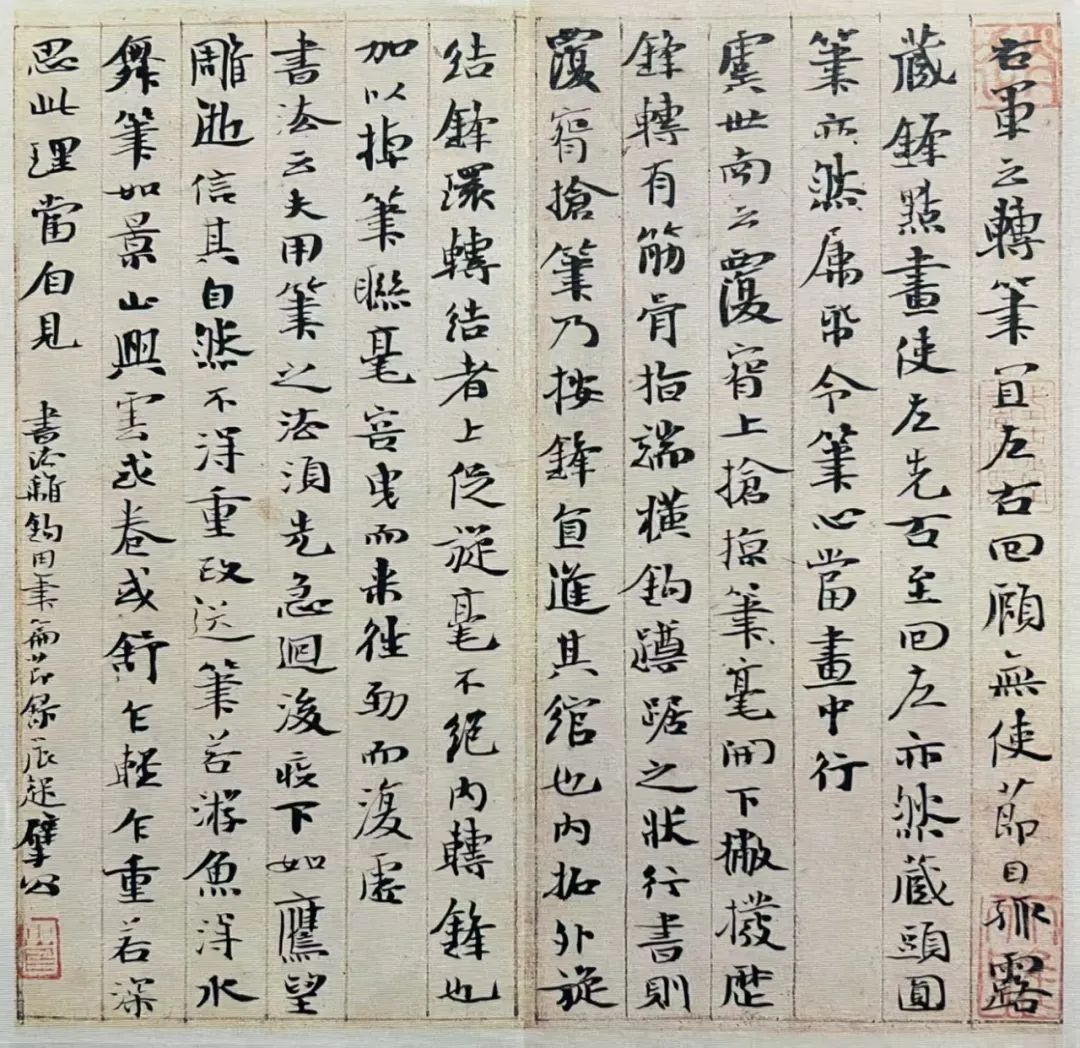 右軍云轉筆宜左右回顧無使節目孤露
藏鋒點畫使左先右至回左亦然藏頭圓
筆亦然屬紙令筆心當畫中行
虞世南云覆腕上搶掠筆毫開下撇撥歷
鋒轉有筋骨指端橫鈎蹲踞之狀行書則
覆腕搶筆乃按鋒直進其綰也內拓外旋
結鋒環轉結者上促旋毫不絕內轉鋒也
加以掉筆聯毫若石而來往勁而復虛
書法云夫用筆之法須先急迴後疾下如鷹望
鵰逝信其自然不得重改送筆若游魚得水
舞筆如景山興雲或卷或舒乍輕乍重若深
思此理當自見
書法離鈎用筆篇節錄